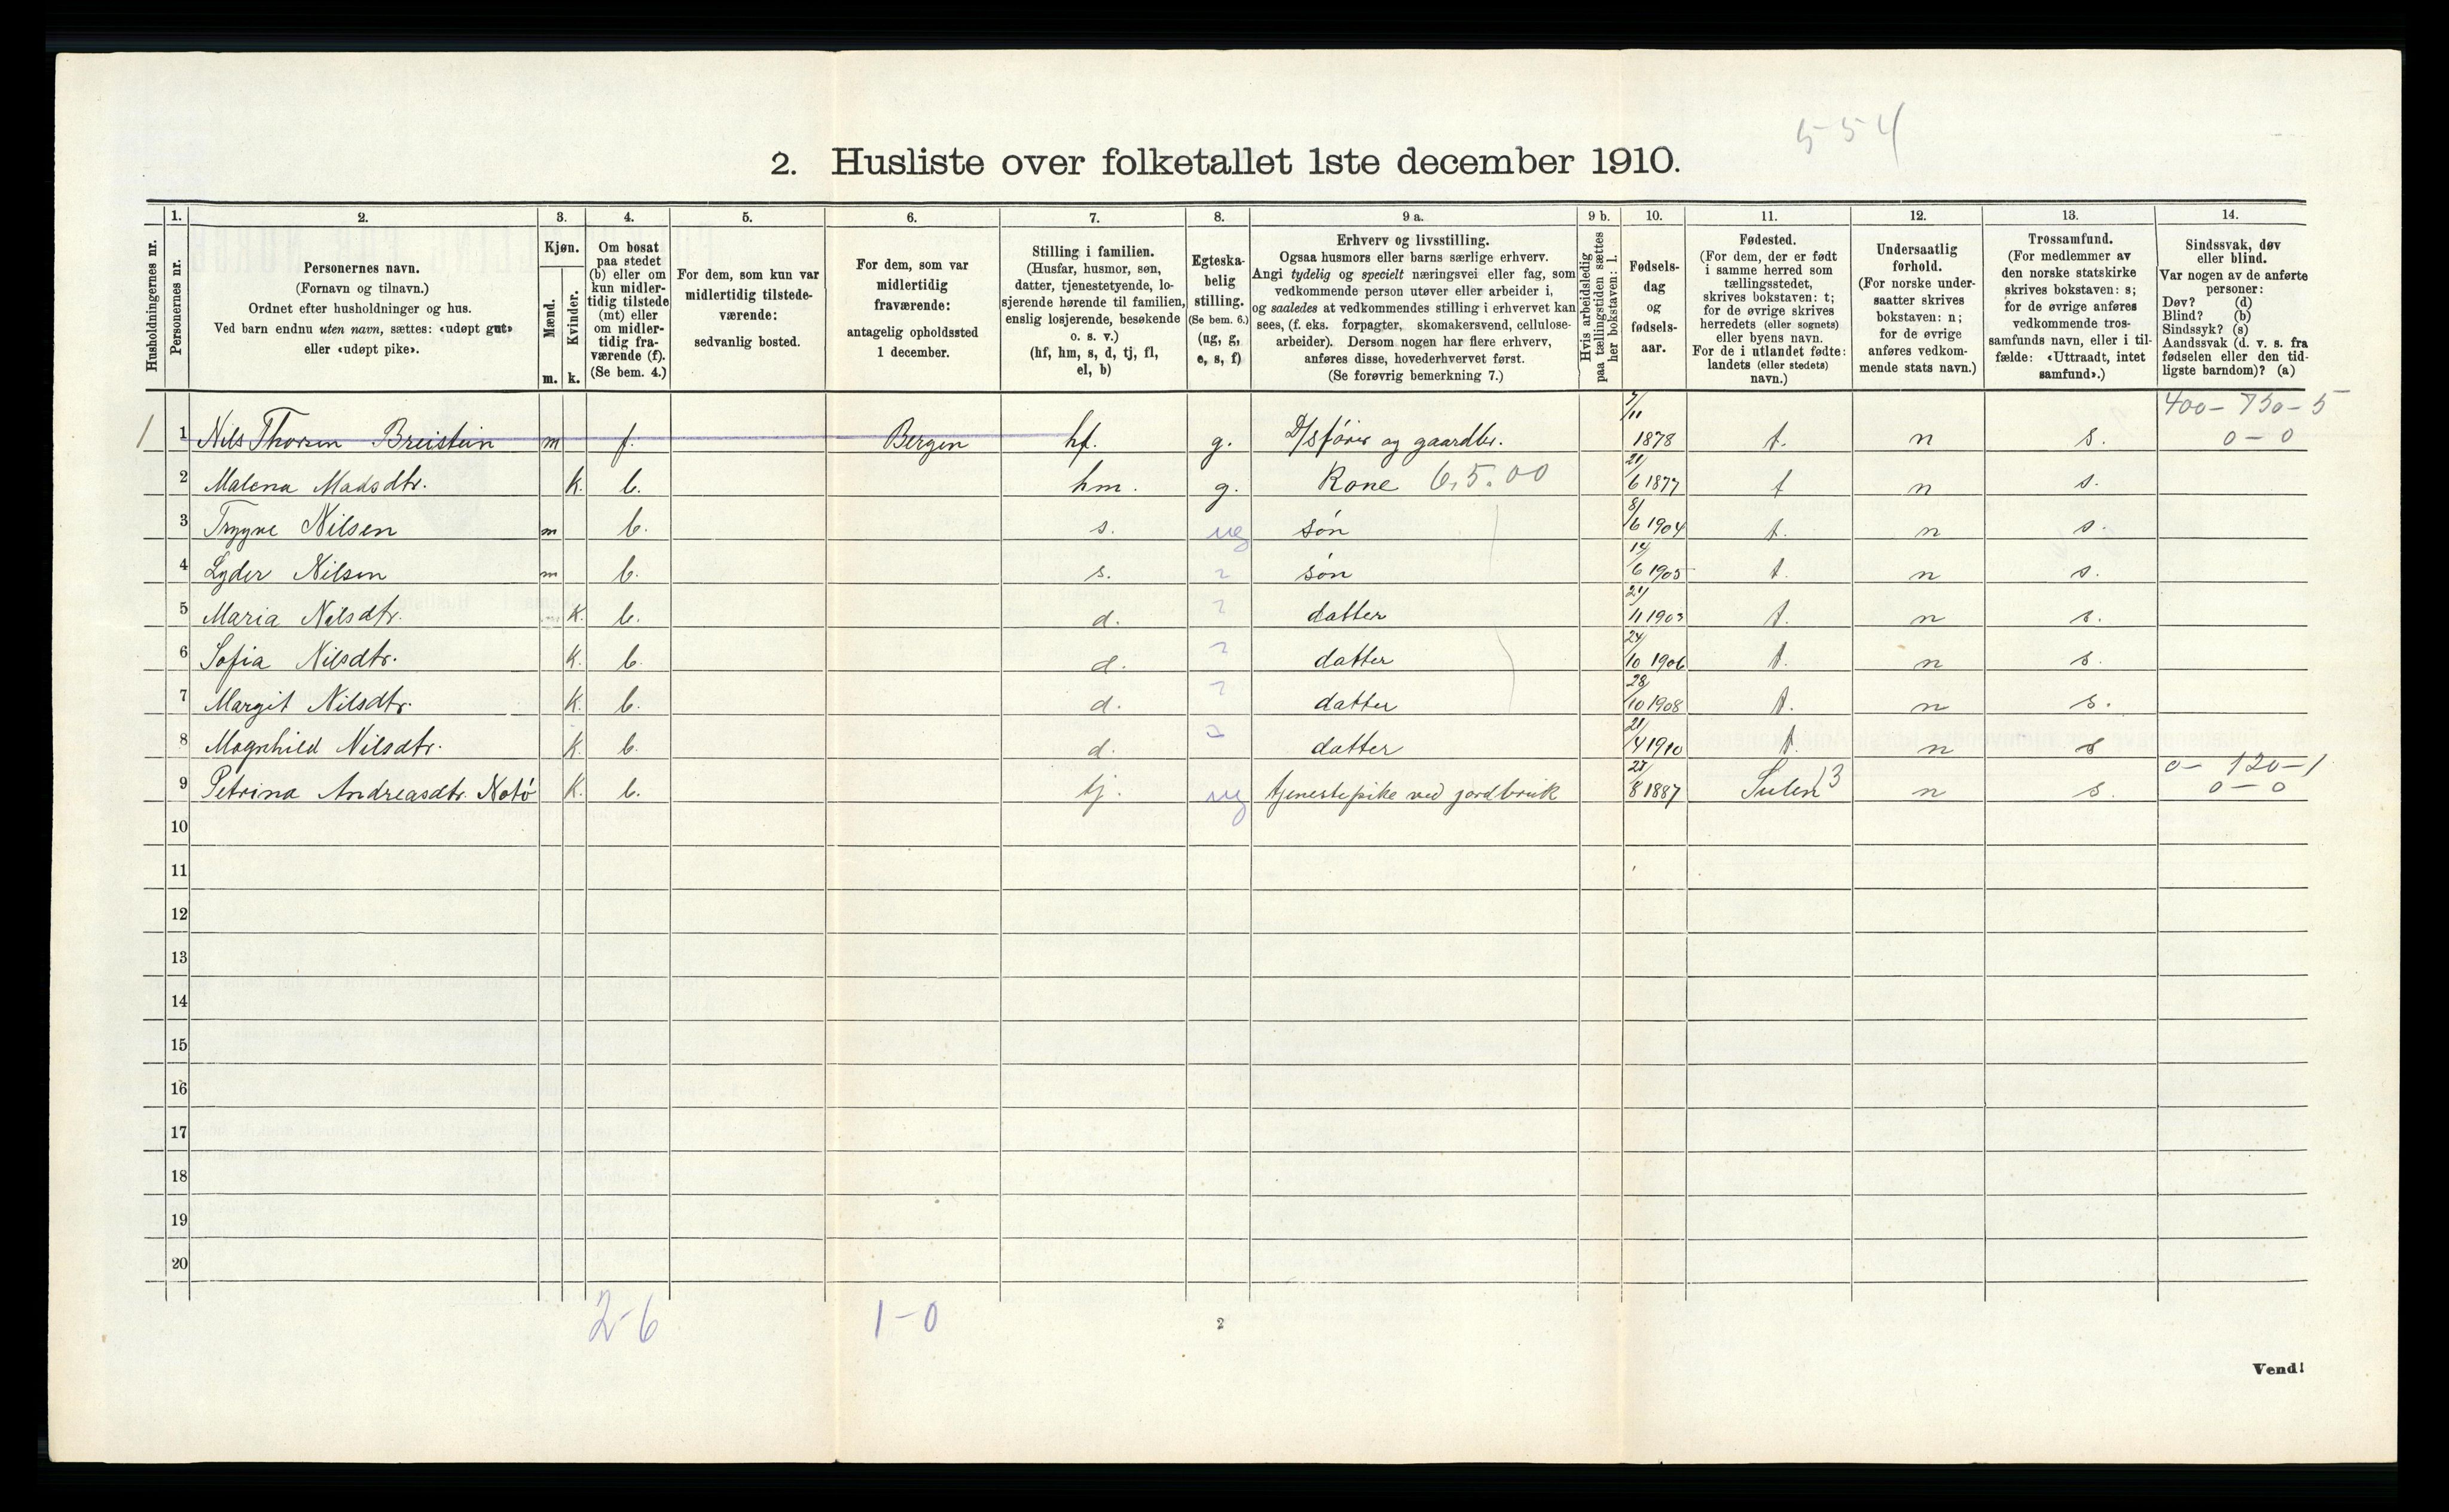 554
2. Husliste over folketallet 1ste december 1910.
Husholdningernes nr.
1. Personernes nr.
2. Personernes navn.
(Fornavn og tilnavn.)
Ordnet efter husholdninger og hus.
Ved barn endnu uten navn, sættes: «udøpt gut»
eller «udøpt pike».
3. Kjøn.
Mænd. Kvinder.
m. k.
4. Om bosat
paa stedet
(b) eller om
kun midler-
tidig tilstede
(mt) eller
om midler-
tidig fra-
værende (f).
(Se bem. 4.)
5. For dem, som kun var
midlertidig tilstede-
værende:
sedvanlig bosted.
6. For dem, som var
midlertidig
fraværende:
antagelig opholdssted
1 december.
7. Stilling i familien.
(Husfar, husmor, søn,
datter, tjenestetyende, lo-
sjerende hørende til familien,
enslig losjerende, besøkende
o. s. v.)
(hf, hm, s, d, tj, fl,
el, b)
8. Egteska-
belig
stilling.
(Se bem. 6.)
(ug, g,
e, s, f)
9 a. Erhverv og livsstilling.
Ogsaa husmors eller barns særlige erhverv.
Angi tydelig og specielt næringsvei eller fag, som
vedkommende person utøver eller arbeider i,
og saaledes at vedkommendes stilling i erhvervet kan
sees, (f. eks. forpagter, skomakersvend, cellulose-
arbeider). Dersom nogen har flere erhverv,
anføres disse, hovederhvervet først.
(Se forøvrig bemerkning 7.)
9 b. Hvis arbeidsledig
paa tællingstiden sættes
her bokstaven: l.
10. Fødsels-
dag
og
fødsels-
aar.
11. Fødested.
(For dem, der er født
i samme herred som
tællingsstedet,
skrives bokstaven: t;
for de øvrige skrives
herredets (eller sognets)
eller byens navn.
For de i utlandet fødte:
landets (eller stedets)
navn.)
12. Undersaatlig
forhold.
(For norske under-
saatter skrives
bokstaven: n;
for de øvrige
anføres vedkom-
mende stats navn.)
13. Trossamfund.
(For medlemmer av
den norske statskirke
skrives bokstaven: s;
for de øvrige anføres
vedkommende tros-
samfunds navn, eller i til-
fælde: «Uttraadt, intet
samfund».)
14. Sindssvak, døv
eller blind.
Var nogen av de anførte
personer:
Døv? (d)
Blind? (b)
Sindssyk? (s)
Aandssvak (d. v. s. fra
fødselen eller den tid-
ligste barndom)? (a)
1 1 Nils Thorsen Breistein m f. Bergen hf. g. D/sfører og gaardbr. 7/11 1878 t. n s. 400-730-5 0-0
2 Malena Madsdtr. k. b. hm. g. Kone 6.5.00 21/6 1877 t n s.
3 Trygve Nilsen m b. s. ug søn 8/6 1904 t. n s.
4 Lyder Nilsen m b. s. søn 14/6 1905 t. n s.
5 Maria Nilsdtr. k. b. d. datter 21/11 1903 t. n s.
6 Sofia Nilsdtr. k. b. d. datter 24/10 1906 t. n s.
7 Margit Nilsdtr. k. b. d. datter 28/10 1908 t. n s.
8 Magnhild Nilsdtr. k. b. d. datter 21/4 1910 t. n s
9 Petrina Andreasdtr. Notø k. b. tj. ug tjenestepike ved jordbruk 27/8 1887 Sulen 13 n s. 0-120-1 0-0
10
11
12
13
14
15
16
17
18
19
20
2-6 1-0
2
Vend!